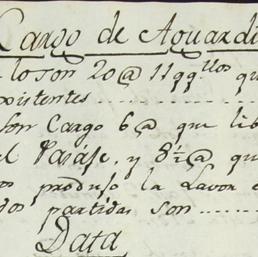 Cargo de Aguardi
lo son 20@ 11 qqllos qu
existentes
son Cargo 6@ que lib
el Parage, y 8½@ qu
os produjo la Lavor
dos partidas son
Data